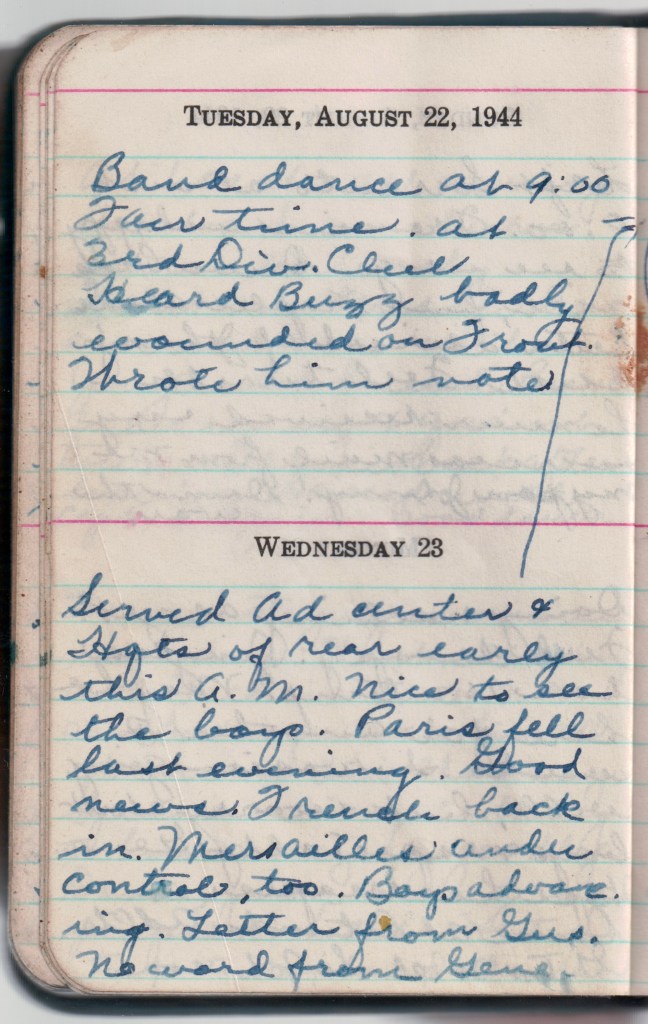 TUESDAY, AUGUST 22, 1944
Band dance at 9:00
Fair time. at
3rd Div. Club
Heard Buzz badly
wounded on Front.
Wrote him note
WEDNESDAY 23
Served Ad center &
Hqts of rear early
this A.M. Nice to see
the boys. Paris fell
last evening. Good
news. French back
in. Mersailles under
control, too. Boys advanc-
ing. Letter from Gus.
No word from Gene.